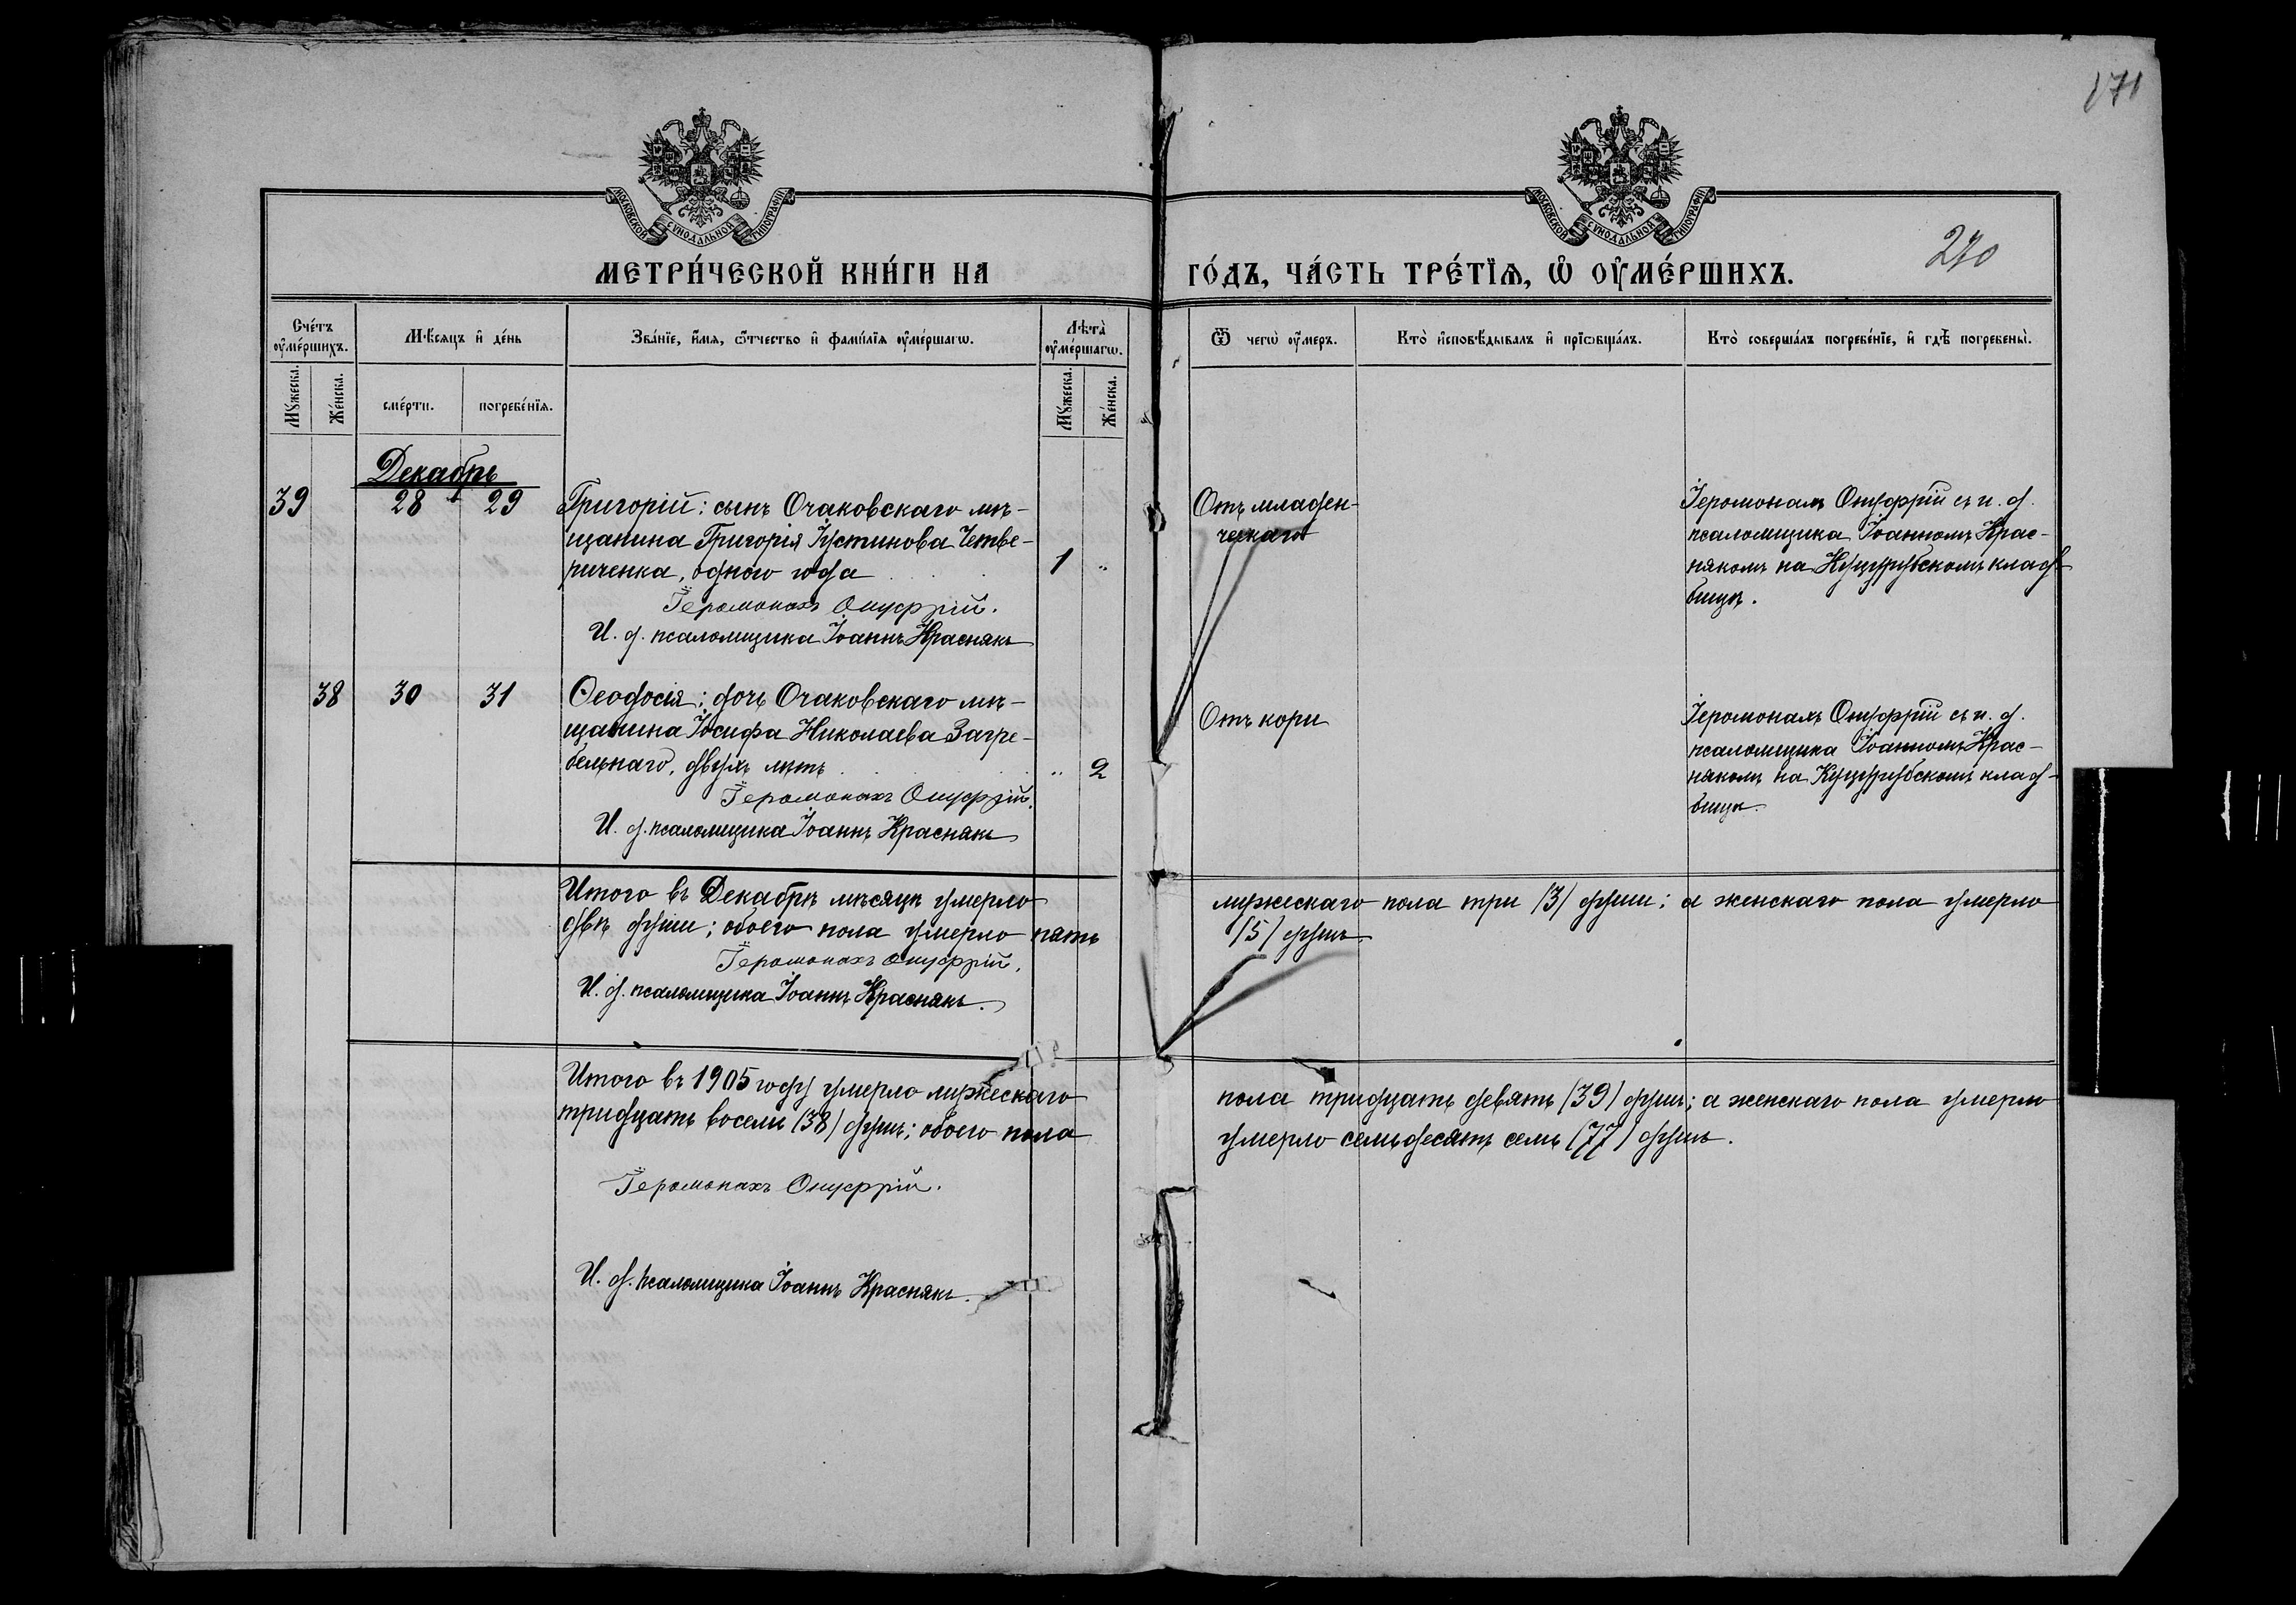 171
МОСКОВСКОЙ СУНОДАЛЬНОЙ ТИПОГРАФІИ
МОСКОВСКОЙ СУНОДАЛЬНОЙ ТИПОГРАФІИ
270
МЕТРИ́ЧЕСКОЙ КНИ́ГИ НА ГО́ДЪ, ЧА́СТЬ ТРЕ́ТЇѦ, Ѡ҆ ОУ҆МЕ́РШИХЪ.
Сче́тъ оу҆ме́ршихъ.
Мѣ́сяцъ и҆ де́нь
Зва́нїе, и҆́мѧ, ѻ҆́тчество и҆ фами́лїѧ оу҆ме́ршагѡ.
Лѣта̀ оу҆ме́ршагѡ.
Ѿ чегѡ̀ оу҆́меръ.
Кто̀ и҆сповѣ́дывалъ и҆ прїѡбща́лъ.
Кто̀ соверша́лъ погребе́нїе, и҆ гдѣ̀ погребены̀.
Мꙋ́жеска.
Же́нска.
сме́рти.
погребе́нїѧ.
Мꙋ́жеска.
Же́нска.
Декабрь
39 28 29 Григорій; сынъ Очаковскаго мѣ-
щанина Григорія Іустинова Четве-
риченка, одного года 1 "
Іеромонахъ Онуфрій.
И. д. псаломщика Іоаннъ Краснякъ
Отъ младен-
ческаго
Іеромонахъ Онуфрій съ и. д.
псаломщика Іоанномъ Крас-
някомъ на Куцурубскомъ клад-
бищѣ.
38 30 31 Ѳеодосія; дочь Очаковскаго мѣ-
щанина Іосифа Николаева Загре-
бельнаго, двухъ лѣтъ " 2
Іеромонахъ Онуфрій.
И. д. псаломщика Іоаннъ Краснякъ
Отъ кори
Іеромонахъ Онуфрій съ и. д.
псаломщика Іоанномъ Крас-
някомъ на Куцурубскомъ клад-
бищѣ.
Итого въ Декабрѣ мѣсяцѣ умерло мужескаго пола три (3) души; а женскаго пола умерло
двѣ души; обоего пола умерло пять (5) душъ.
Іеромонахъ Онуфрій.
И. д. псаломщика Іоаннъ Краснякъ.
Итого въ 1905 году умерло мужескаго пола тридцать девять (39) душъ; а женскаго пола умерло
тридцать восемь (38) душъ; обоего пола умерло семьдесятъ семь (77) душъ.
Іеромонахъ Онуфрій.
И. д. псаломщика Іоаннъ Краснякъ.